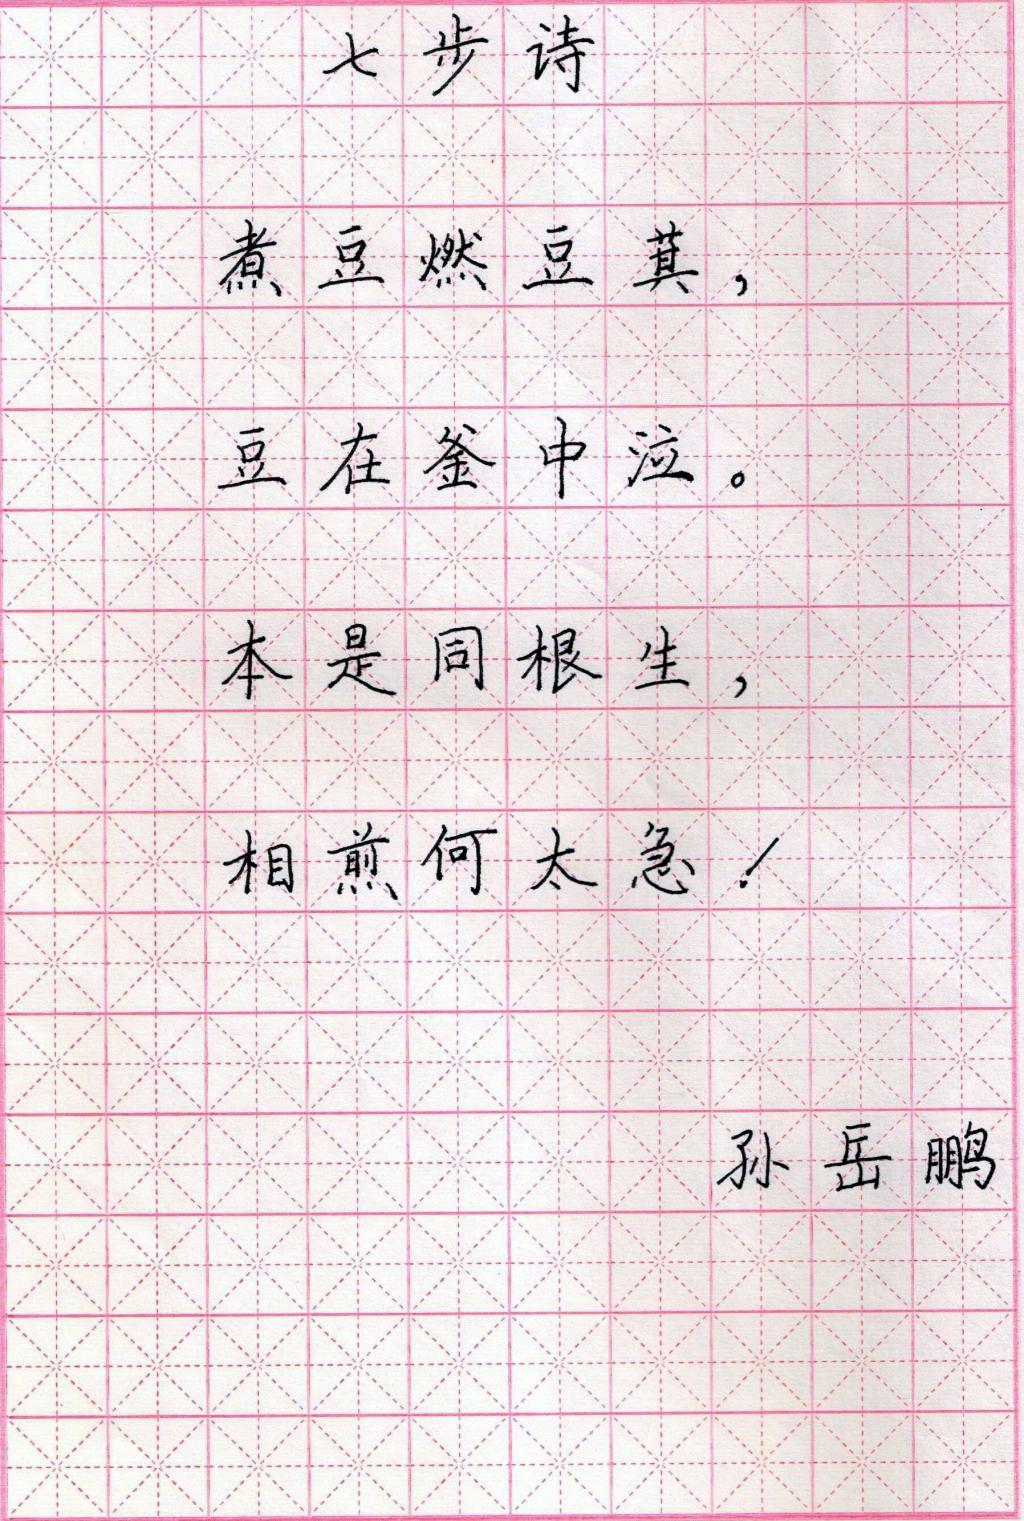 七步诗
煮豆燃豆萁,
豆在釜中泣。
本是同根生,
相煎何太急!
孙岳鹏